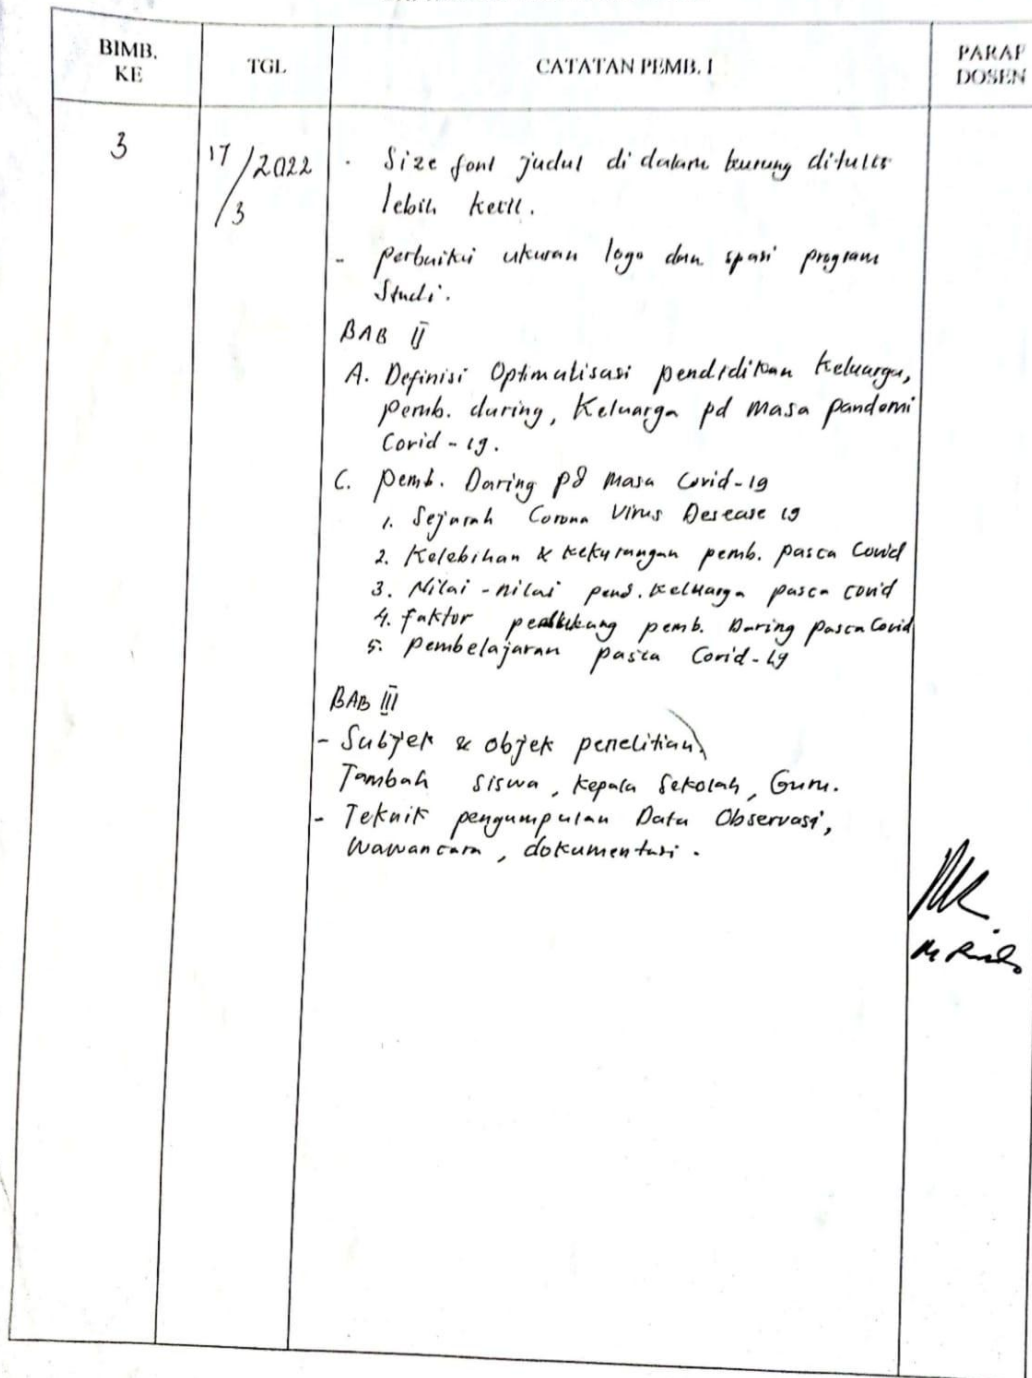 BIMB. KE
TGL
CATATAN PEMB. I
PARAF DOSEN
3
17/3/2022
- Size font judul di dalam kurung ditulis
lebih kecil.
- perbaiki ukuran logo dan spasi program
Studi.
BAB II
A. Definisi Optimalisasi pendidikan Keluarga,
pemb. daring, Keluarga pd masa pandemi
Covid-19.
C. pemb. Daring pd masa Covid-19
1. Sejarah Corona Virus Desease 19
2. Kelebihan & kekurangan pemb. pasca Covid
3. Nilai-nilai pend. keluarga pasca covid
4. faktor pendukung pemb. Daring pasca Covid
5. pembelajaran pasca Covid-19
BAB III
- Subjek & objek penelitian.
Tambah siswa, kepala sekolah, Guru.
- Teknik pengumpulan Data Observasi,
wawancara, dokumentasi.